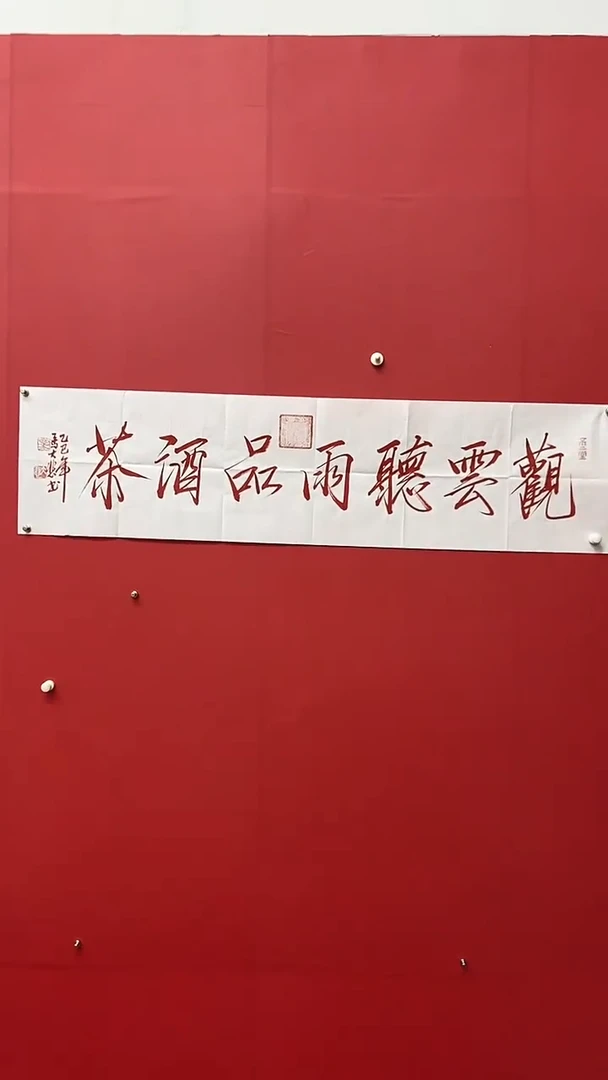 觀雲聽雨品酒茶
乙巳年